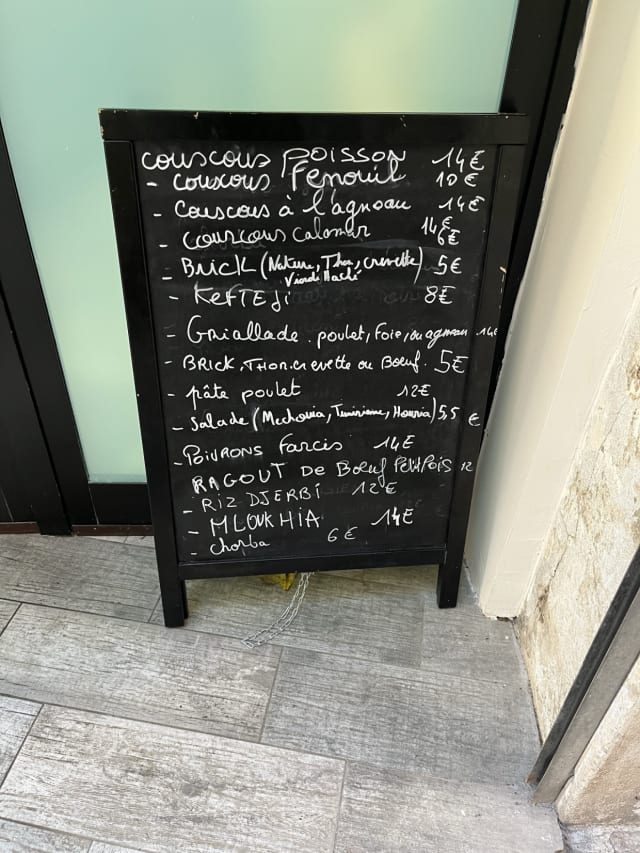 couscous POISSON 14€
- couscous Fenouil 10€
- couscous à l'agneau 14€
- couscous calamar 14€
6€
- BRICK (Nature, Thon, crevette) 5€
Viande Haché
- KEFTEJI 8€
- Griallade. poulet, Foie, ou agneau. 14€
- BRICK, THON. crevette ou Boeuf. 5€
- pâte poulet 12€
- Salade (Mechouia, Tunisienne, Houria) 5,5 €
- POIVRONS farcis 14€
RAGOUT De Boeuf Petit POIS 12
- RIZ DJERBI 12€
- MLOUKHIA 14€
- chorba 6€